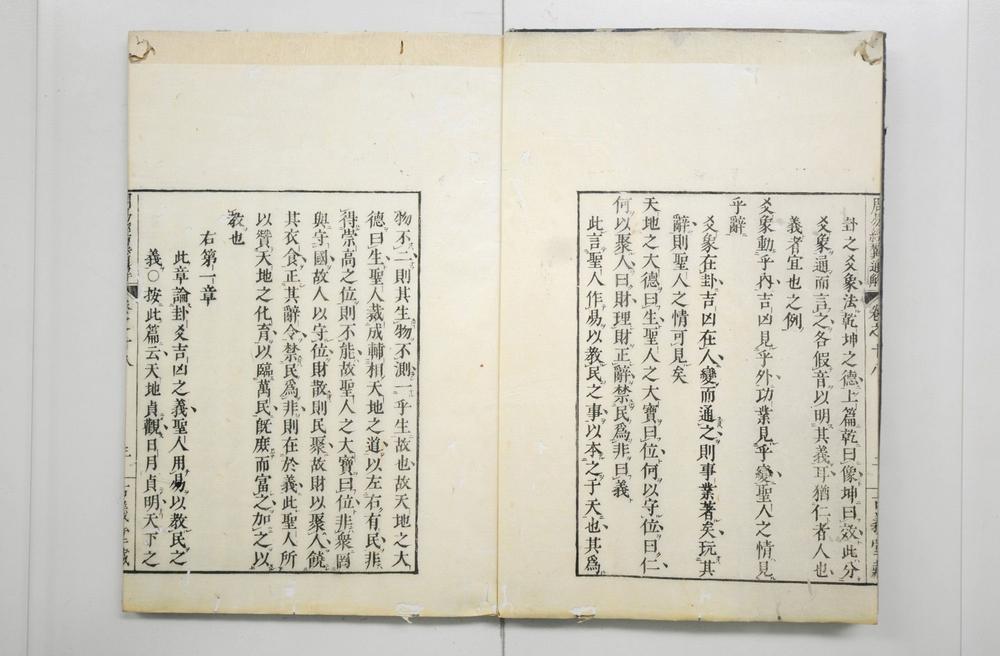 卦之爻象法乾坤之德上篇乾曰像坤曰效此分
爻象通而言之各假音以明其義耳猶仁者人也
義者宜也之例
爻象動乎內吉凶見乎外功業見乎變聖人之情見
乎辭
爻象在卦吉凶在人變而通之則事業著矣玩其
辭則聖人之情可見矣
天地之大德曰生聖人之大寶曰位何以守位曰仁
何以聚人曰財理財正辭禁民爲非曰義
此言聖人作易以教民之事以本之于天也其爲
物不二則其生物不測一乎生故也故天地之大
德曰生聖人裁成輔相天地之道以左右有民非
得崇高之位則不能故聖人之大寶曰位非衆罔
與守國故人以守位財散則民聚故財以聚人饒
其衣食正其辭令禁民爲非則在於義此聖人所
以贊天地之化育以臨萬民旣庶而富之加之以
教也
右第一章
此章論卦爻吉凶之義聖人用易以教民之
義○按此篇云天地貞觀日月貞明天下之